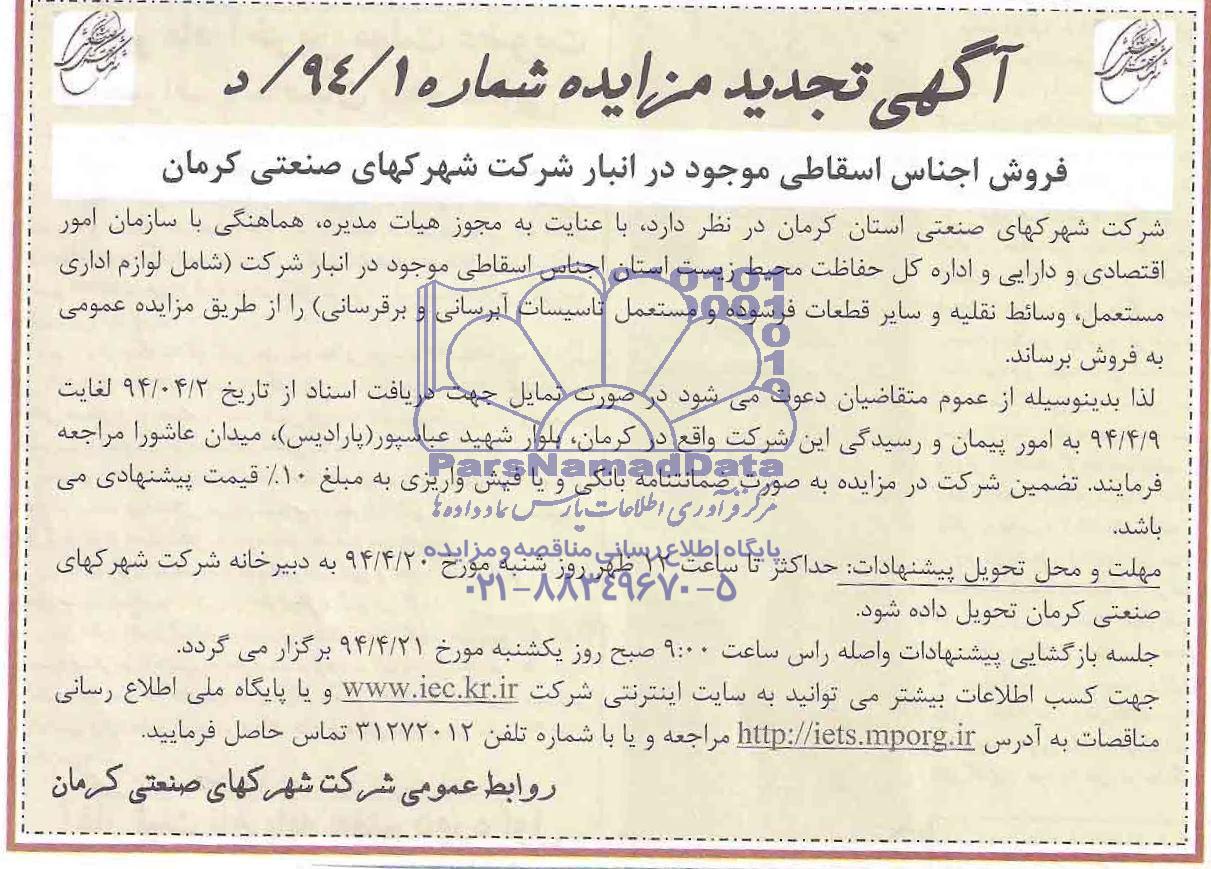 آگهی تجدید مزایده شماره ۹۴/۱/ د
فروش اجناس اسقاطی موجود در انبار شرکت شهرکهای صنعتی کرمان
شرکت شهرکهای صنعتی استان کرمان در نظر دارد، با عنایت به مجوز هیات مدیره، هماهنگی با سازمان امور
اقتصادی و دارایی و اداره کل حفاظت محیط زیست استان اجناس اسقاطی موجود در انبار شرکت (شامل لوازم اداری
مستعمل، وسائط نقلیه و سایر قطعات فرسوده و مستعمل تاسیسات آبرسانی و برقرسانی) را از طریق مزایده عمومی
به فروش برساند.
لذا بدینوسیله از عموم متقاضیان دعوت می شود در صورت تمایل جهت دریافت اسناد از تاریخ ۹۴/۰۴/۲ لغایت
۹۴/۴/۹ به امور پیمان و رسیدگی این شرکت واقع در کرمان، بلوار شهید عباسپور(پارادیس)، میدان عاشورا مراجعه
فرمایند. تضمین شرکت در مزایده به صورت ضمانتنامه بانکی و یا فیش واریزی به مبلغ ۱۰٪ قیمت پیشنهادی می
باشد.
مهلت و محل تحویل پیشنهادات: حداکثر تا ساعت ۱۲ ظهر روز شنبه مورخ ۹۴/۴/۲۰ به دبیرخانه شرکت شهرکهای
صنعتی کرمان تحویل داده شود.
جلسه بازگشایی پیشنهادات واصله راس ساعت ۹:۰۰ صبح روز یکشنبه مورخ ۹۴/۴/۲۱ برگزار می گردد.
جهت کسب اطلاعات بیشتر می توانید به سایت اینترنتی شرکت www.iec.kr.ir و یا پایگاه ملی اطلاع رسانی
مناقصات به آدرس http://iets.mporg.ir مراجعه و یا با شماره تلفن ۳۱۲۷۲۰۱۲ تماس حاصل فرمایید.
روابط عمومی شرکت شهرکهای صنعتی کرمان
ParsNamadData
مرکز فرآوری اطلاعات پارس نماد داده ها
پایگاه اطلاع رسانی مناقصه و مزایده
۰۲۱-۸۸۳۴۹۶۷۰-۵